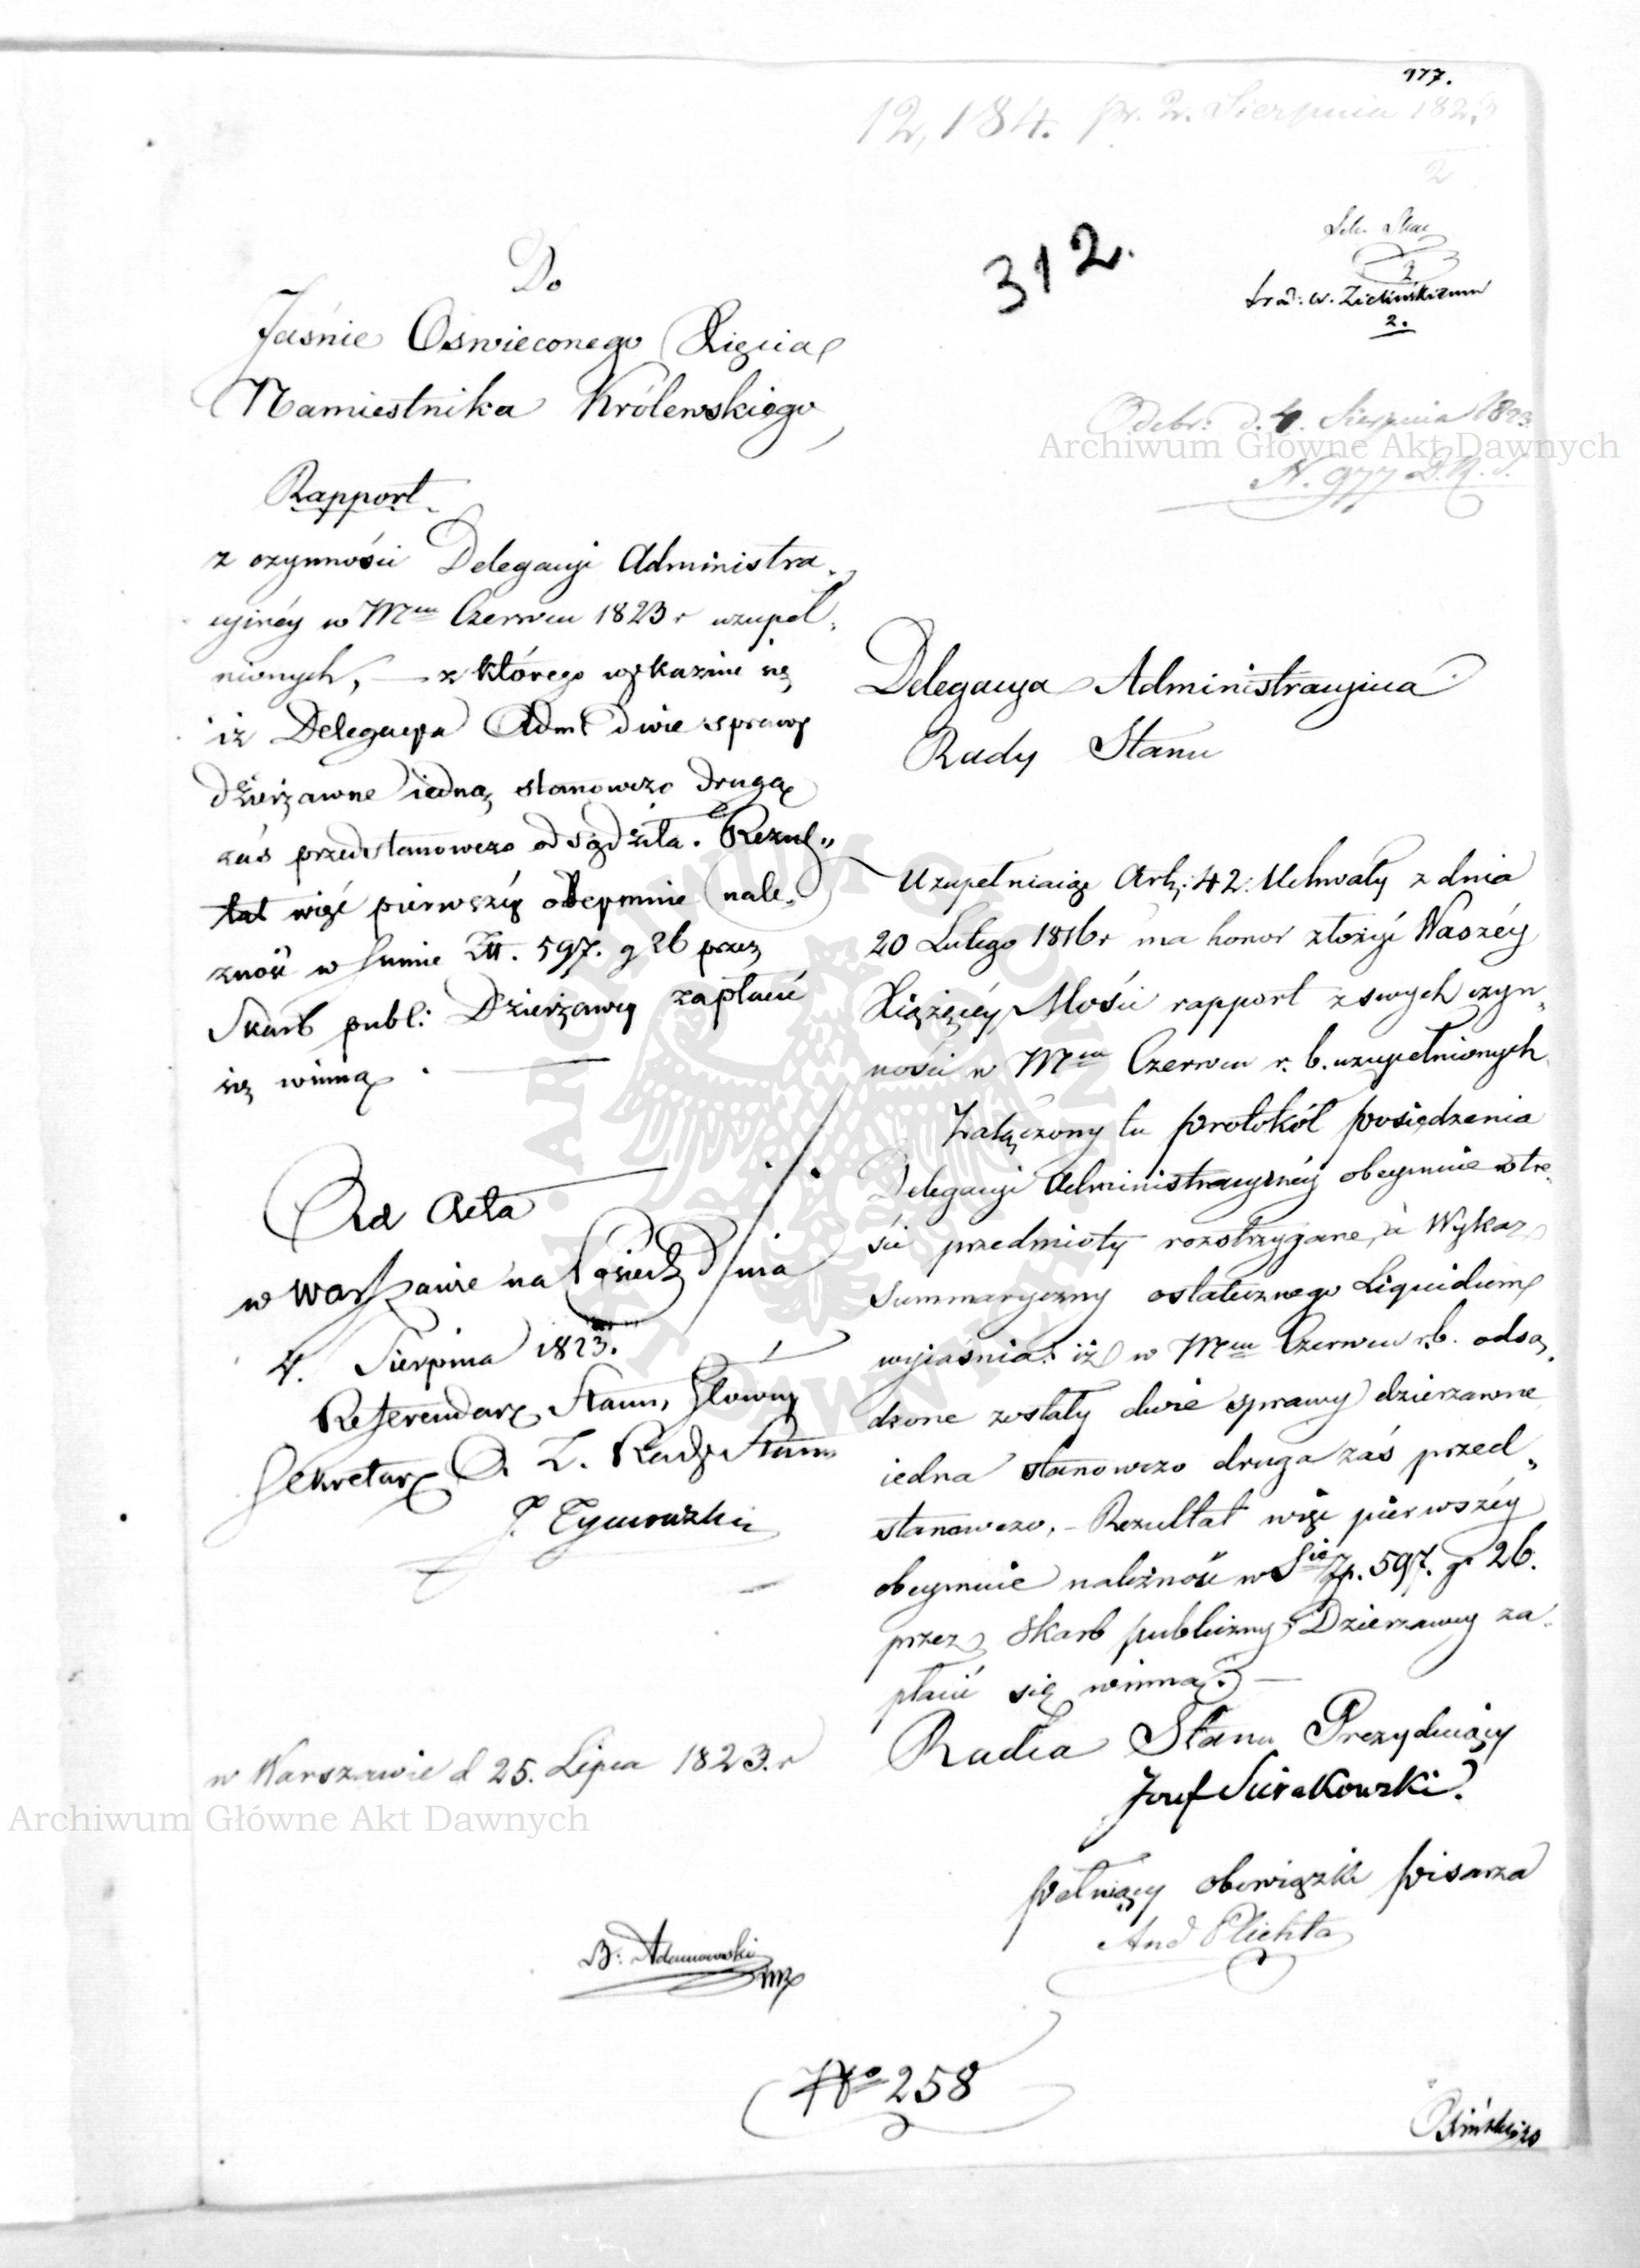 977.
12,184. pr. 2. Sierpnia 1823
2
312.
Sek. Skar
2
trad: W. Zielińskiemu
2.
Odebr: d. 4. Sierpnia 1823.
Archiwum Główne Akt Dawnych
N. 977 D.R.S.
Do
Jaśnie Oświeconego Xięcia
Namiestnika Królewskiego,
Rapport
z czynności Delegacyi Administra„
cyinéy w Mcu Czerwcu 1823 r uzupeł„
nionych, — z którego wykazuie się
iż Delegacya Adm: dwie sprawy
dzierżawne iedną stanowczo drugą
zaś przedstanowczo odsądziła. Rezul„
tat więc pierwszéy obeymuie nale„
żność w summie Zł. 597. g 26 przez
Skarb publ: Dzierżawcy zapłacić
się winną. —
Ad Acta
w Warszawie na Posiedz Dnia
4. Sierpnia 1823.
Referendarz Stanu, Główny
Sekretarz O. Z. Rady Stanu
J. Tymowski
w Warszawie d 25. Lipca 1823. r
Archiwum Główne Akt Dawnych
B. Adamowski
mp
Delegacya Administracyina
Rady Stanu
Uzupełniaiąc Art: 42. Uchwały z dnia
20 Lutego 1816 r ma honor złożyć Waszéy
Xiążęcéy Mości rapport z swych czyn„
ności w Mcu Czerwcu r. b. uzupełnionych
Załączony tu Protokół Posiedzenia
Delegacyi Administracyinéy obeymuie w tre„
ści przedmioty rozstrzygane, a Wykaz
Summaryczny ostatecznego Liquidum
wyiaśnia: iż w Mcu Czerwcu r.b. odsą„
dzone zostały dwie sprawy dzierżawne
iedna stanowczo druga zaś przed„
stanowczo, – Rezultat więc pierwszéy
obeymuie należność w Sie Zp. 597. gr 26.
przez Skarb publiczny Dzierżawcy za„
płacić się winną. —
Radca Stanu Prezyduiący
Józef Sierakowski.
Pełniący obowiązki Pisarza
And Plichta
No 258
Osińskiego
ARCHIWUM GŁÓWNE AKT DAWNYCH